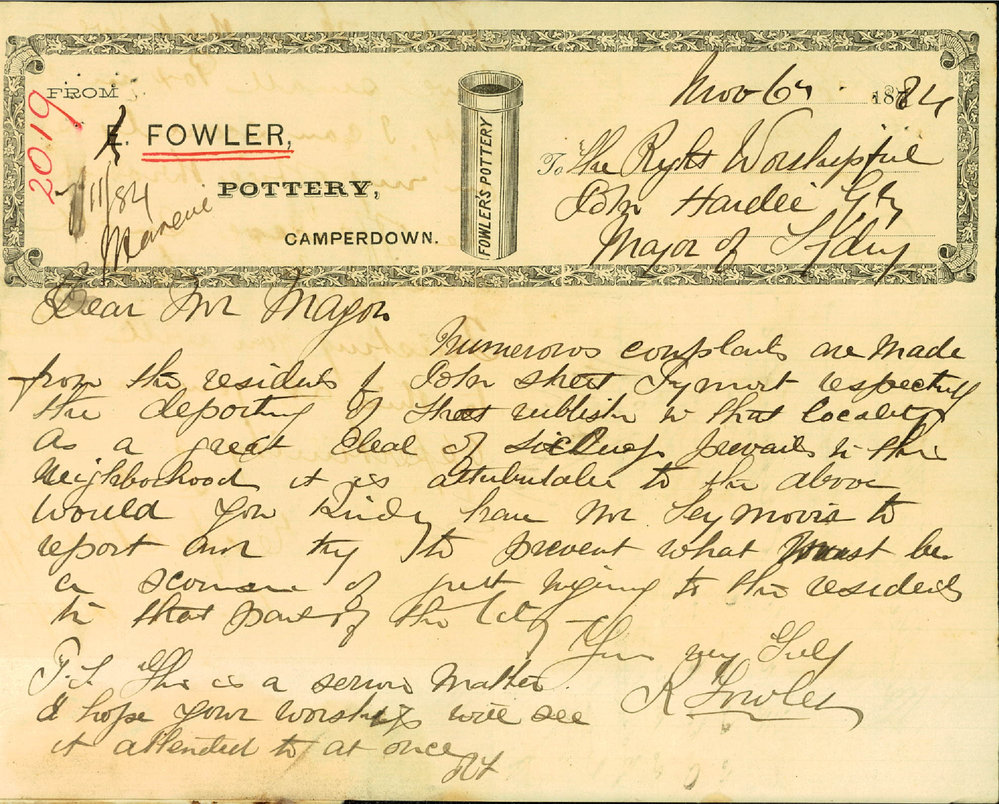 FROM
2019
E. FOWLER,
POTTERY,
CAMPERDOWN.
7/11/84
FOWLER'S POTTERY
Nov 6th 1884
To The Right Worshipful
John Hardie
Mayor of Sydny
Dear Mr Mayor
Numerous complaints are made
from the residents of John street Pyrmont respecting
the deporting of street rubbish in that locality
as a great deal of sickness prevails in this
neighborhood it is attributable to the above
would you kindly have Mr Seymour to
report and try to prevent what must be
a source of to the residents
in that part of the City
Yours very Truly
R Fowler
P.S. This is a serious matter
I hope your worship will see
it attended to at once
RF